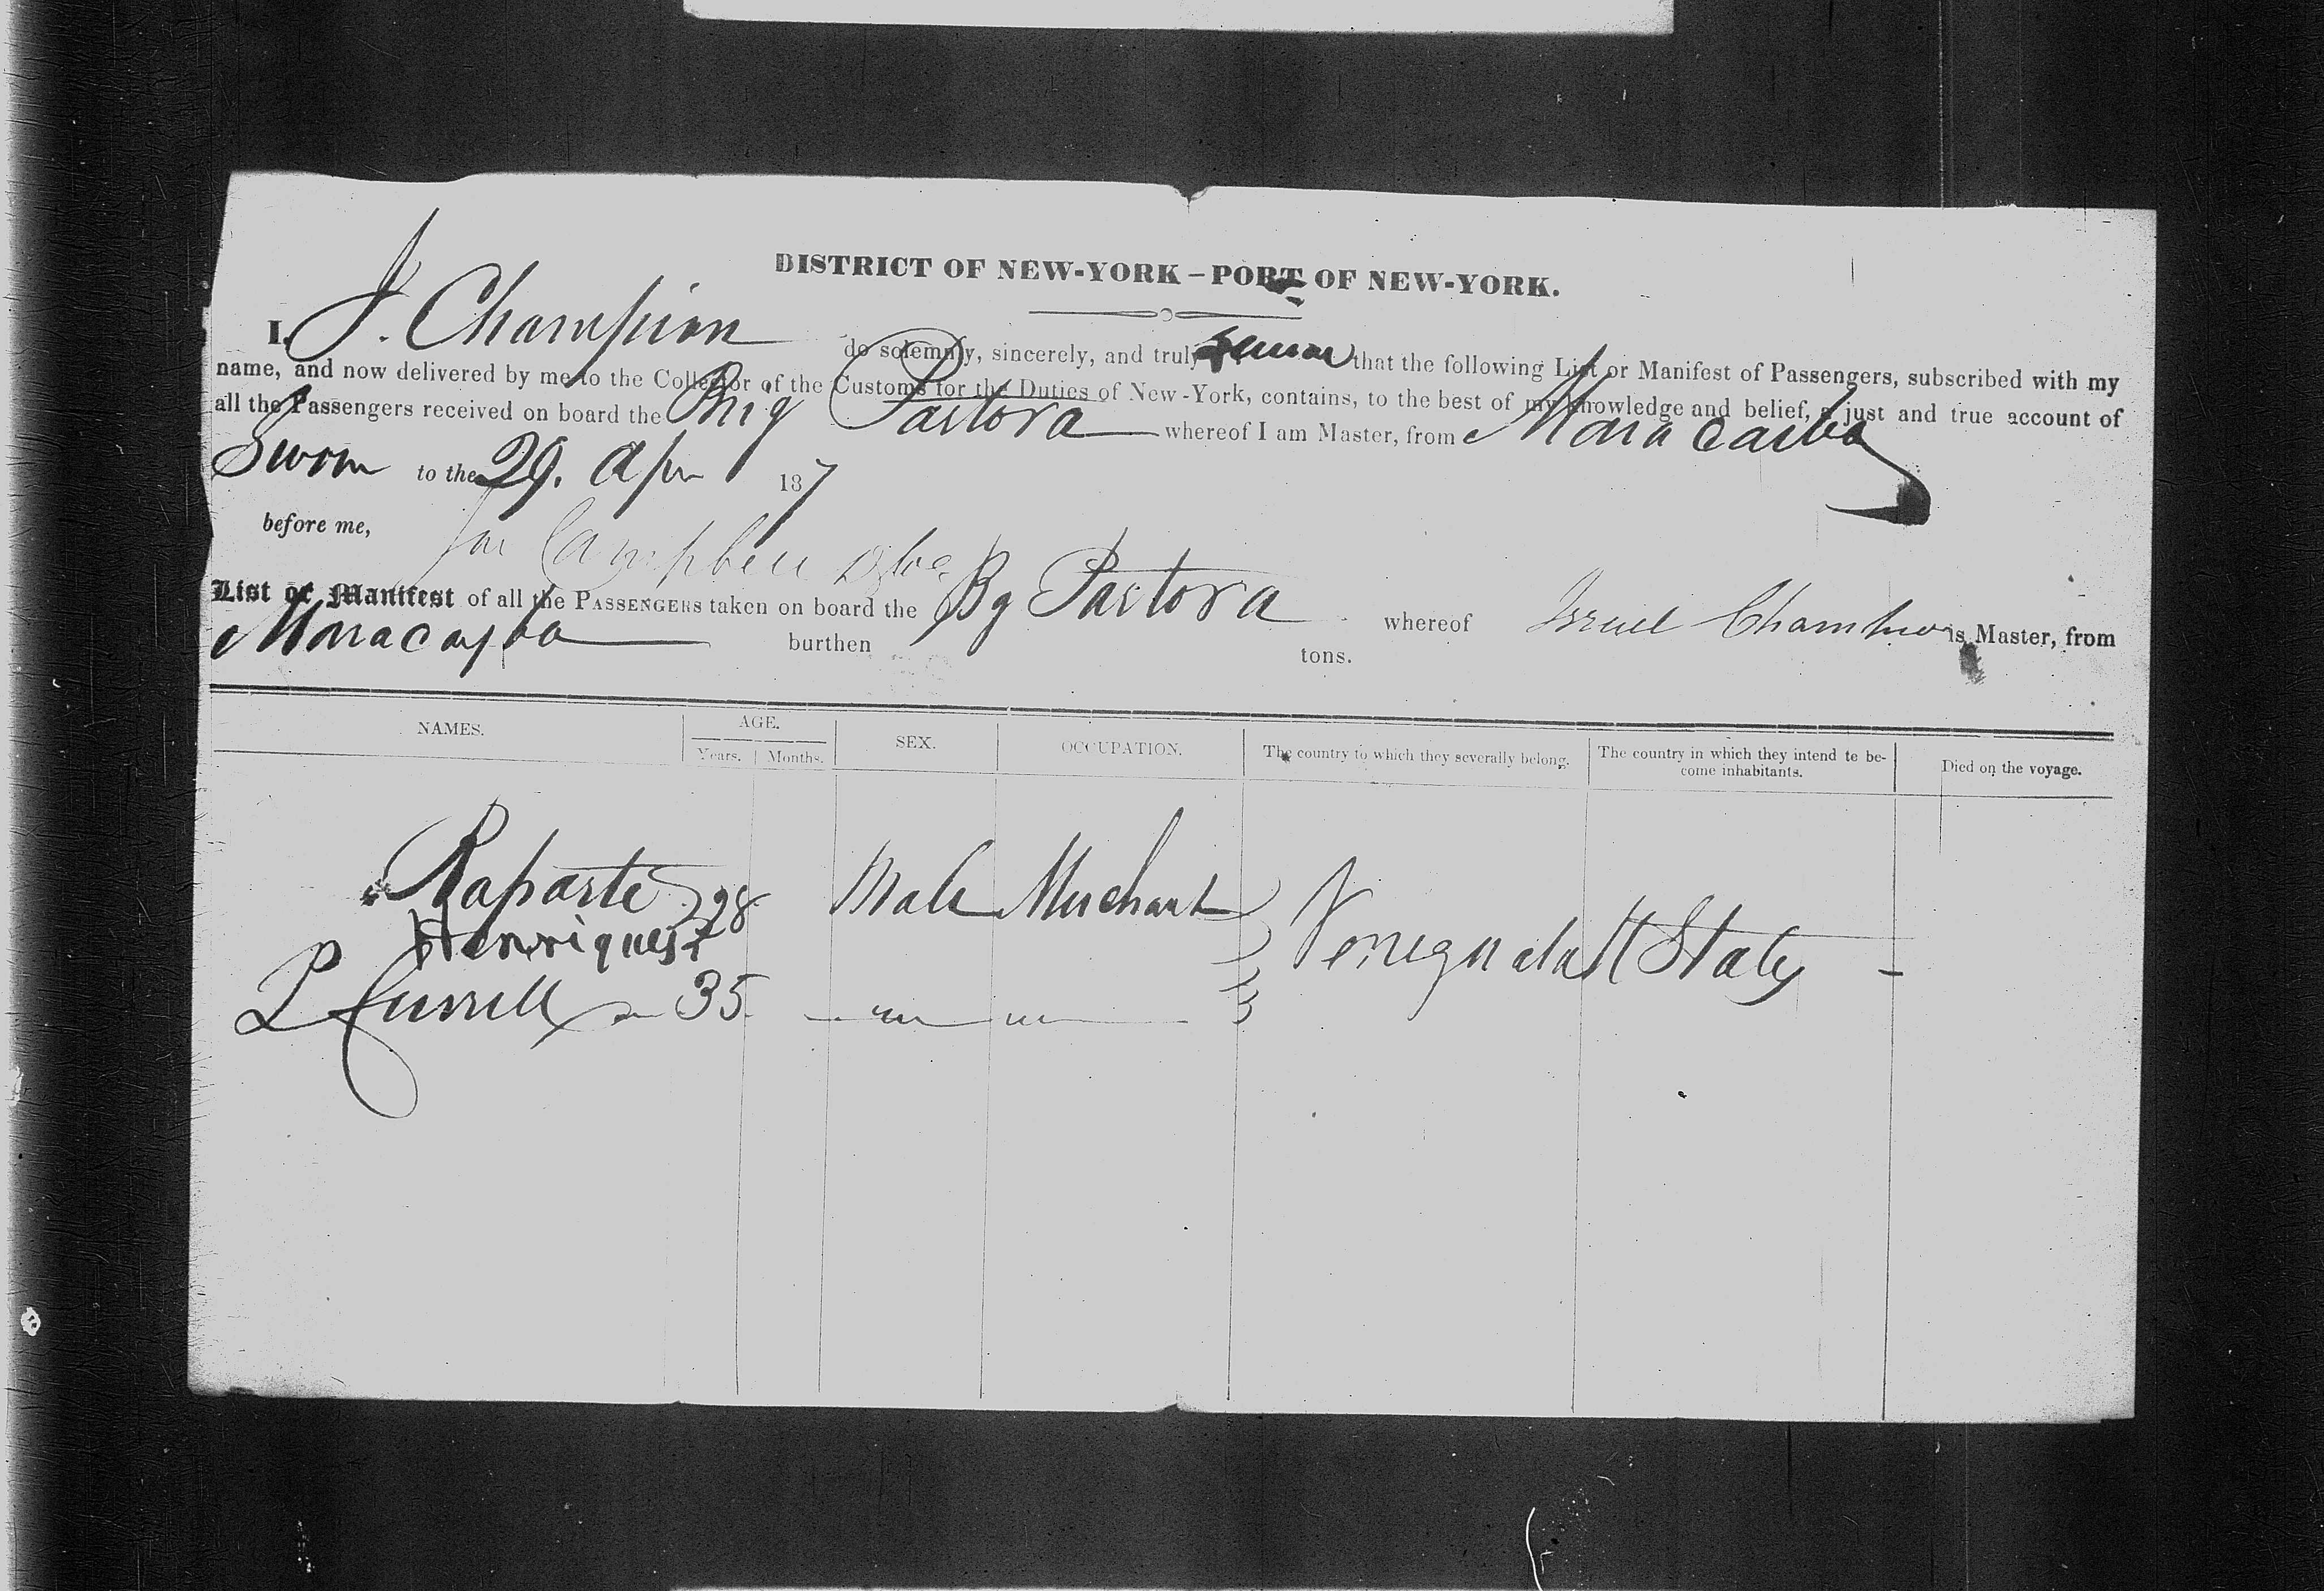 DISTRICT OF NEW-YORK – PORT OF NEW-YORK.
I, J. Champion do solemnly, sincerely, and truly swear that the following List or Manifest of Passengers, subscribed with my
name, and now delivered by me to the Collector of the Customs for the Duties of New-York, contains, to the best of my knowledge and belief, a just and true account of
all the Passengers received on board the Brig Pastora whereof I am Master, from Maracaibo
Sworn to the 29. Apr 187
before me, Campbell
List or Manifest of all the PASSENGERS taken on board the Bg Pastora whereof Israel Champion is Master, from
Maracaybo burthen tons.
NAMES. AGE. SEX. OCCUPATION. The country to which they severally belong. The country in which they intend te be-
come inhabitants. Died on the voyage.
Years. Months.
Raparte 28 Male Merchant
Henriquest Venezuela U States –
P 35 " "